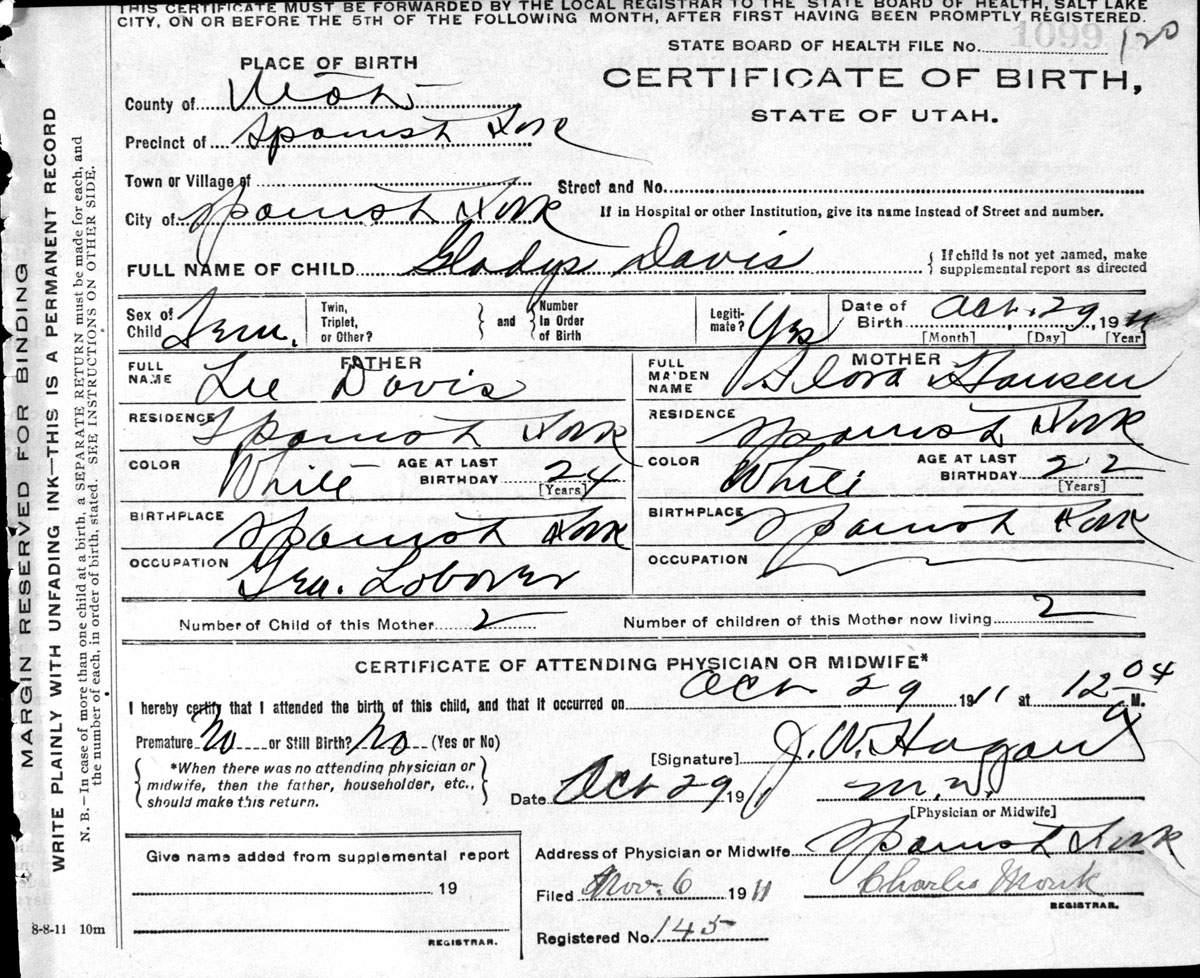 THIS CERTIFICATE MUST BE FORWARDED BY THE LOCAL REGISTRAR TO THE STATE BOARD OF HEALTH, SALT LAKE
CITY, ON OR BEFORE THE 5TH OF THE FOLLOWING MONTH, AFTER FIRST HAVING BEEN PROMPTLY REGISTERED.
STATE BOARD OF HEALTH FILE No. 1099 120
PLACE OF BIRTH
CERTIFICATE OF BIRTH,
STATE OF UTAH.
County of Utah
Precinct of Spanish Fork
Town or Village of
Street and No.
City of Spanish Fork
If in Hospital or other Institution, give its name instead of Street and number.
FULL NAME OF CHILD Gladys Davis
{ If child is not yet named, make supplemental report as directed
Sex of Child Fem.
Twin, Triplet, or Other? } and { Number in Order of Birth
Legitimate? Yes
Date of Birth Oct. 29, 1911
[Month] [Day] [Year]
FATHER
FULL NAME Lee Davis
MOTHER
FULL MAIDEN NAME Flora Hansen
RESIDENCE Spanish Fork
RESIDENCE Spanish Fork
COLOR White AGE AT LAST BIRTHDAY 24 [Years]
COLOR White AGE AT LAST BIRTHDAY 22 [Years]
BIRTHPLACE Spanish Fork
BIRTHPLACE Spanish Fork
OCCUPATION Gen. Laborer
OCCUPATION
Number of Child of this Mother 2
Number of children of this Mother now living 2
CERTIFICATE OF ATTENDING PHYSICIAN OR MIDWIFE*
I hereby certify that I attended the birth of this child, and that it occurred on Oct 29 1911 at 12 04 a M.
Premature No or Still Birth? No (Yes or No)
{ *When there was no attending physician or midwife, then the father, householder, etc., should make this return. }
[Signature] J. W. Hagan
Date Oct 29 191
[Physician or Midwife]
Address of Physician or Midwife Spanish Fork
Give name added from supplemental report
19
REGISTRAR.
Filed Nov. 6 1911
Charles Monk
REGISTRAR.
Registered No. 145
8-8-11 10m
MARGIN RESERVED FOR BINDING
WRITE PLAINLY WITH UNFADING INK—THIS IS A PERMANENT RECORD
N. B.—In case of more than one child at a birth, a SEPARATE RETURN must be made for each, and
the number of each, in order of birth, stated. SEE INSTRUCTIONS ON OTHER SIDE.